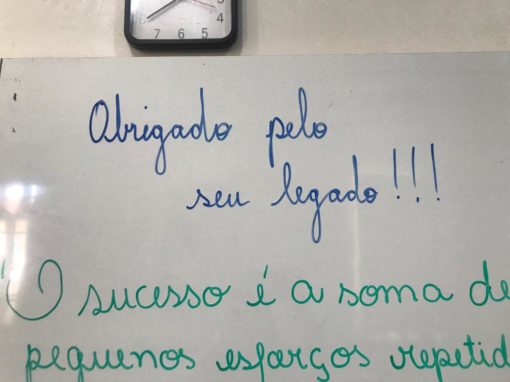 3
4
7 6 5
Obrigado pelo
seu legado!!!
"O sucesso é a soma de
pequenos esforços repetid